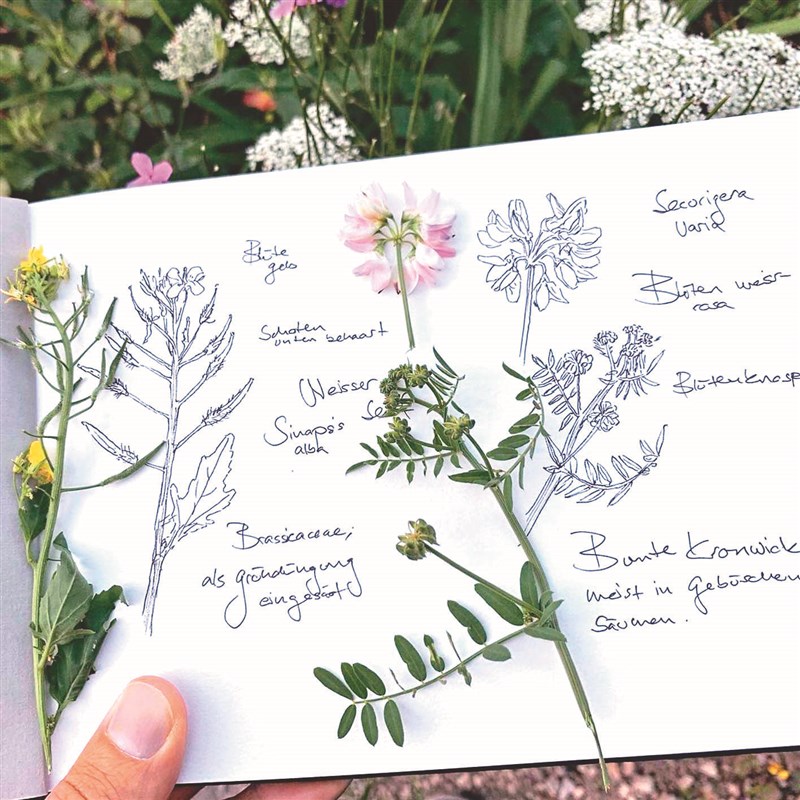 Blüte
gelb
Schoten
unten behaart
Weisser
Se
Sinapis
alba
Brassicaceae;
als Gründüngung
eingesät
Securigera
varia
Blüten weiss-
rosa
Blütenknosp
Bunte Kronwick
meist in Gebüschen
Säumen.